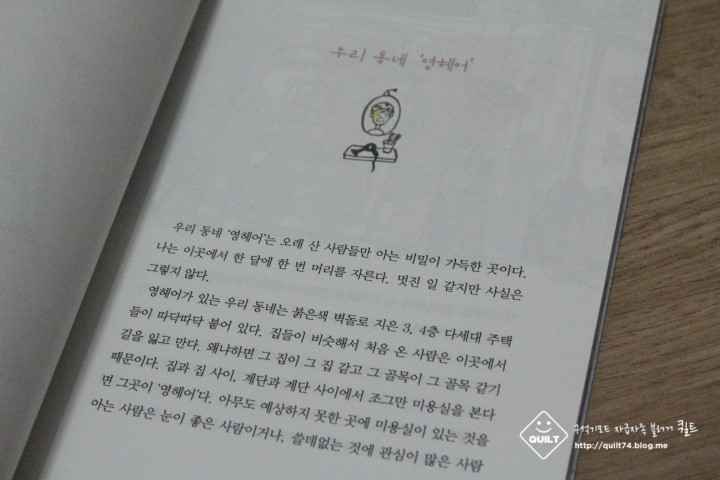 우리 동네 '영헤어'
우리 동네 '영헤어'는 오래 산 사람들만 아는 비밀이 가득한 곳이다.
나는 이곳에서 한 달에 한 번 머리를 자른다. 멋진 일 같지만 사실은
그렇지 않다.
영헤어가 있는 우리 동네는 붉은색 벽돌로 지은 3, 4층 다세대 주택
들이 따닥따닥 붙어 있다. 집들이 비슷해서 처음 온 사람은 이곳에서
길을 잃고 만다. 왜냐하면 그 집이 그 집 같고 그 골목이 그 골목 같기
때문이다. 집과 집 사이, 계단과 계단 사이에서 조그만 미용실을 본다
면 그곳이 '영헤어'다. 아무도 예상하지 못한 곳에 미용실이 있는 것을
아는 사람은 눈이 좋은 사람이거나, 쓸데없는 것에 관심이 많은 사람
QUILT
구석기모드 자급자족 블로거 퀼트
http://quilt74.blog.me